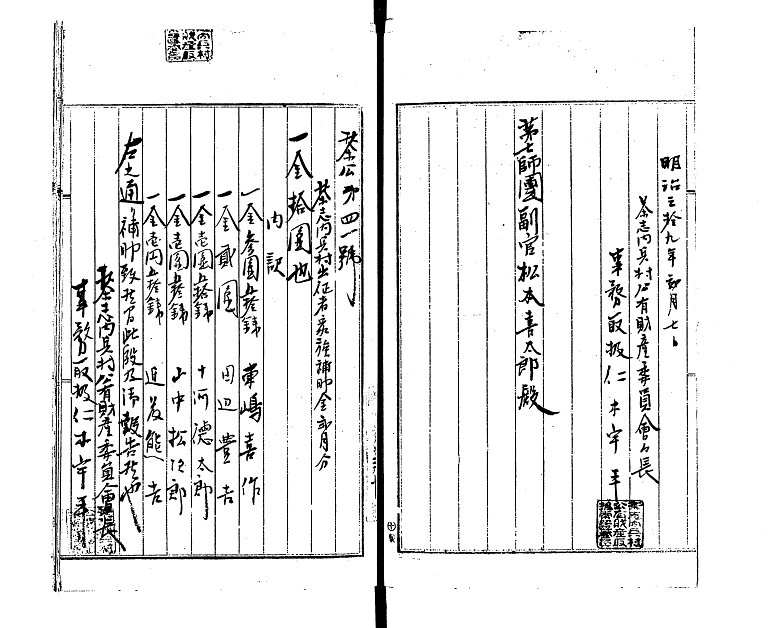 明治三拾九年 月七日
茶志内兵村公有財産委員會々長
事務取扱仁木宇平
第七師團副官松本喜太郎殿
茶公第四一號
茶志内兵村出征者家族補助金 月分
一金拾圓也
内訳
一金参圓五拾錢 東嶋喜作
一金貳圓 田辺豊吉
一金壱圓五拾錢 十河德太郎
一金壱圓五拾錢 山中松次郎
一金壱円五拾錢 近 能吉
右之通補助致 此段及 報告 也
茶志内兵村公有財産委員會長
事務取扱仁木宇平